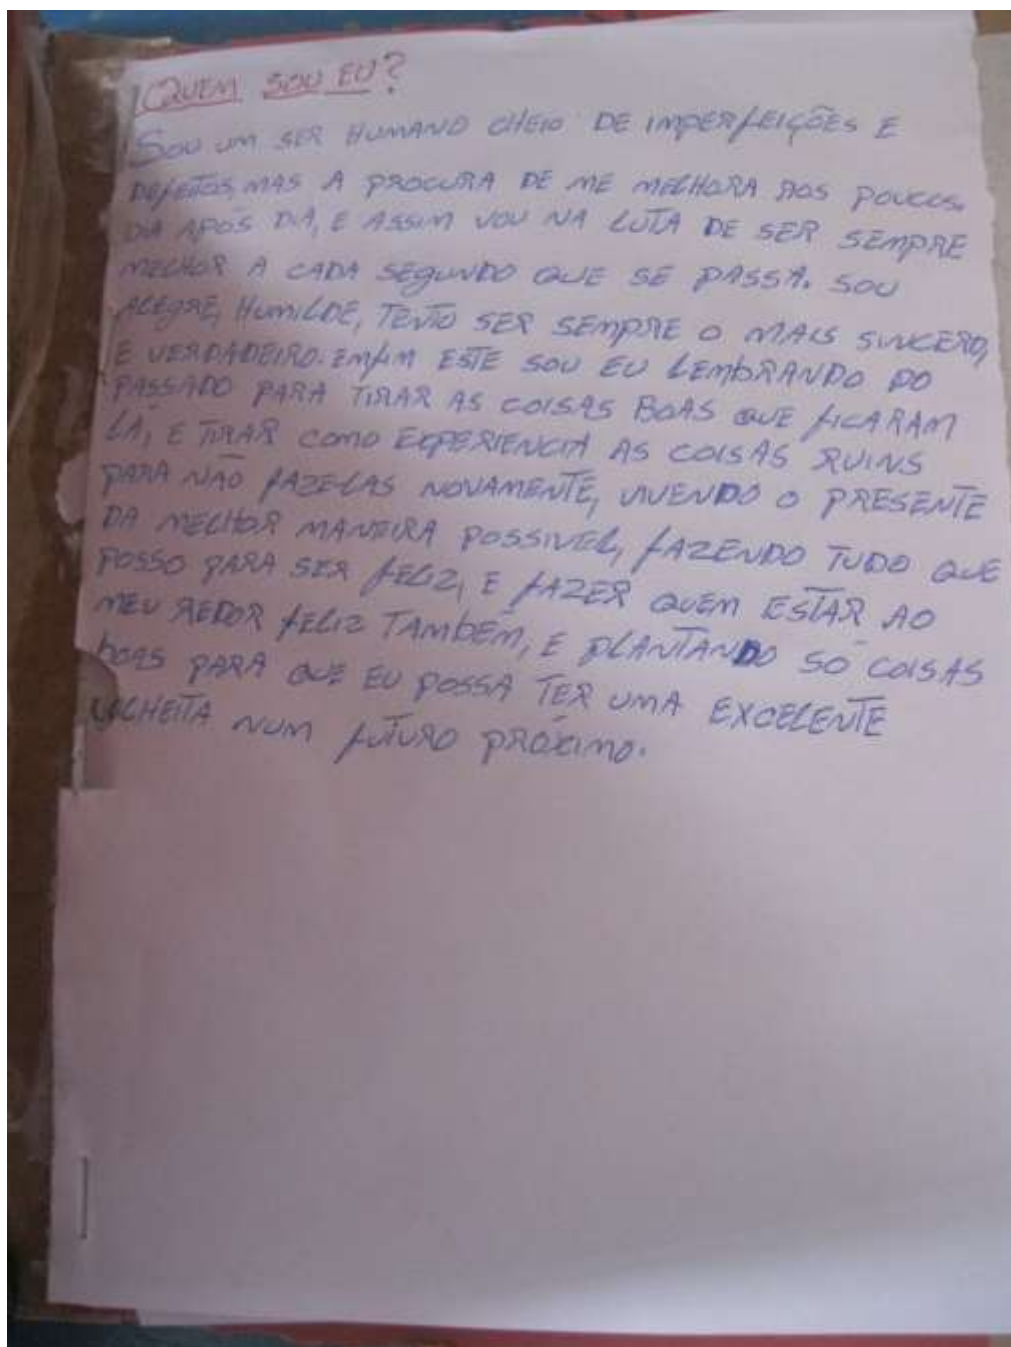 QUEM SOU EU?
SOU UM SER HUMANO CHEIO DE IMPERFEIÇÕES E
DEFEITOS, MAS A PROCURA DE ME MELHORA AOS POUCOS,
DIA APÓS DIA, E ASSIM VOU NA LUTA DE SER SEMPRE
MELHOR A CADA SEGUNDO QUE SE PASSA. SOU
ALEGRE, HUMILDE, TENTO SER SEMPRE O MAIS SINCERO,
E VERDADEIRO. EMFIM ESTE SOU EU LEMBRANDO DO
PASSADO PARA TIRAR AS COISAS BOAS QUE FICARAM
LÁ, E TIRAR COMO EXPERIENCIA AS COISAS RUINS
PARA NÃO FAZE-LAS NOVAMENTE, VIVENDO O PRESENTE
DA MELHOR MANEIRA POSSIVEL, FAZENDO TUDO QUE
POSSO PARA SER FELIZ, E FAZER QUEM ESTAR AO
MEU REDOR FELIZ TAMBÉM, E PLANTANDO SÓ COISAS
BOAS PARA QUE EU POSSA TER UMA EXCELENTE
COLHEITA NUM FUTURO PRÓXIMO.